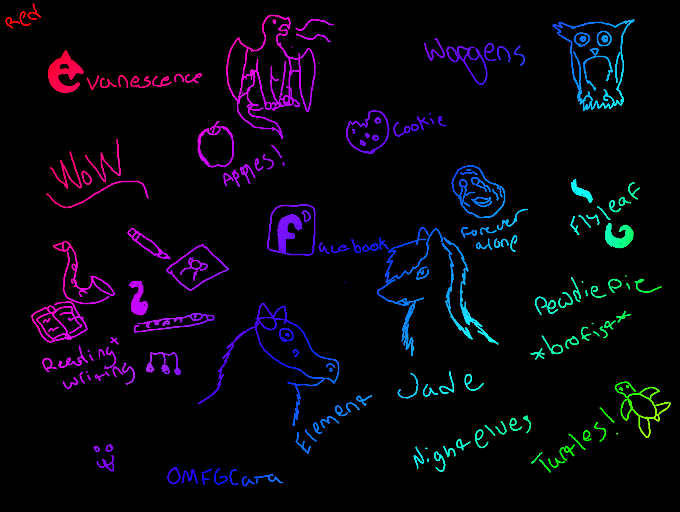 Red
evanescence
Worgens
Cookie
Apples!
WoW
Forever
alone
Flyleaf
Facebook
PewdiePie
*brofist*
Reading+
writing
Element
Jade
Nightelves
Turtles!
OMFGCara